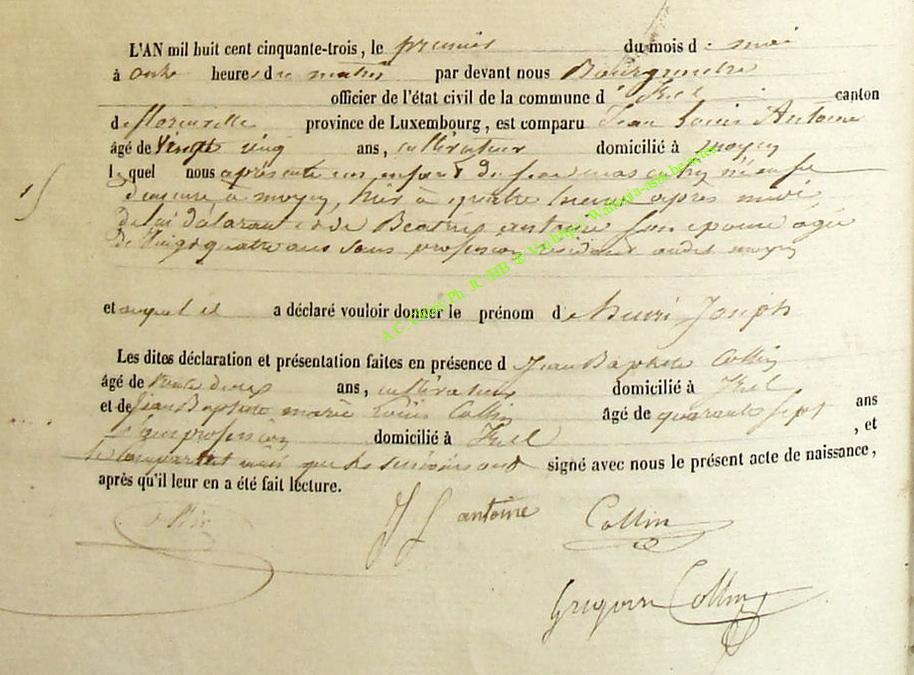 L'AN mil huit cent cinquante-trois, le premier du mois d e mai
à onze heures du matin par devant nous Bourgmestre
officier de l'état civil de la commune d' Izel canton
de florenville province de Luxembourg, est comparu Jean Louis Antoine
âgé de Vingt cinq ans, cultivateur domicilié à moyen
lequel nous a présenté un enfant du sexe masculin né en sa
demeure à moyen, hier à quatre heures après midi
de lui déclarant et de Beatrix antoine son épouse âgée
de Vingt quatre ans sans profession résidant audit moyen
et auquel il a déclaré vouloir donner le prénom de Henri Joseph
Les dites déclaration et présentation faites en présence d Jean Baptiste Collin
âgé de trente deux ans, cultivateur domicilié à Izel
et de Jean Baptiste marie Louis Collin âgé de quarante sept ans
profession domicilié à Izel , et
le comparant ainsi que les témoins ont signé avec nous le présent acte de naissance,
après qu'il leur en a été fait lecture.
J L antoine Collin
Collin